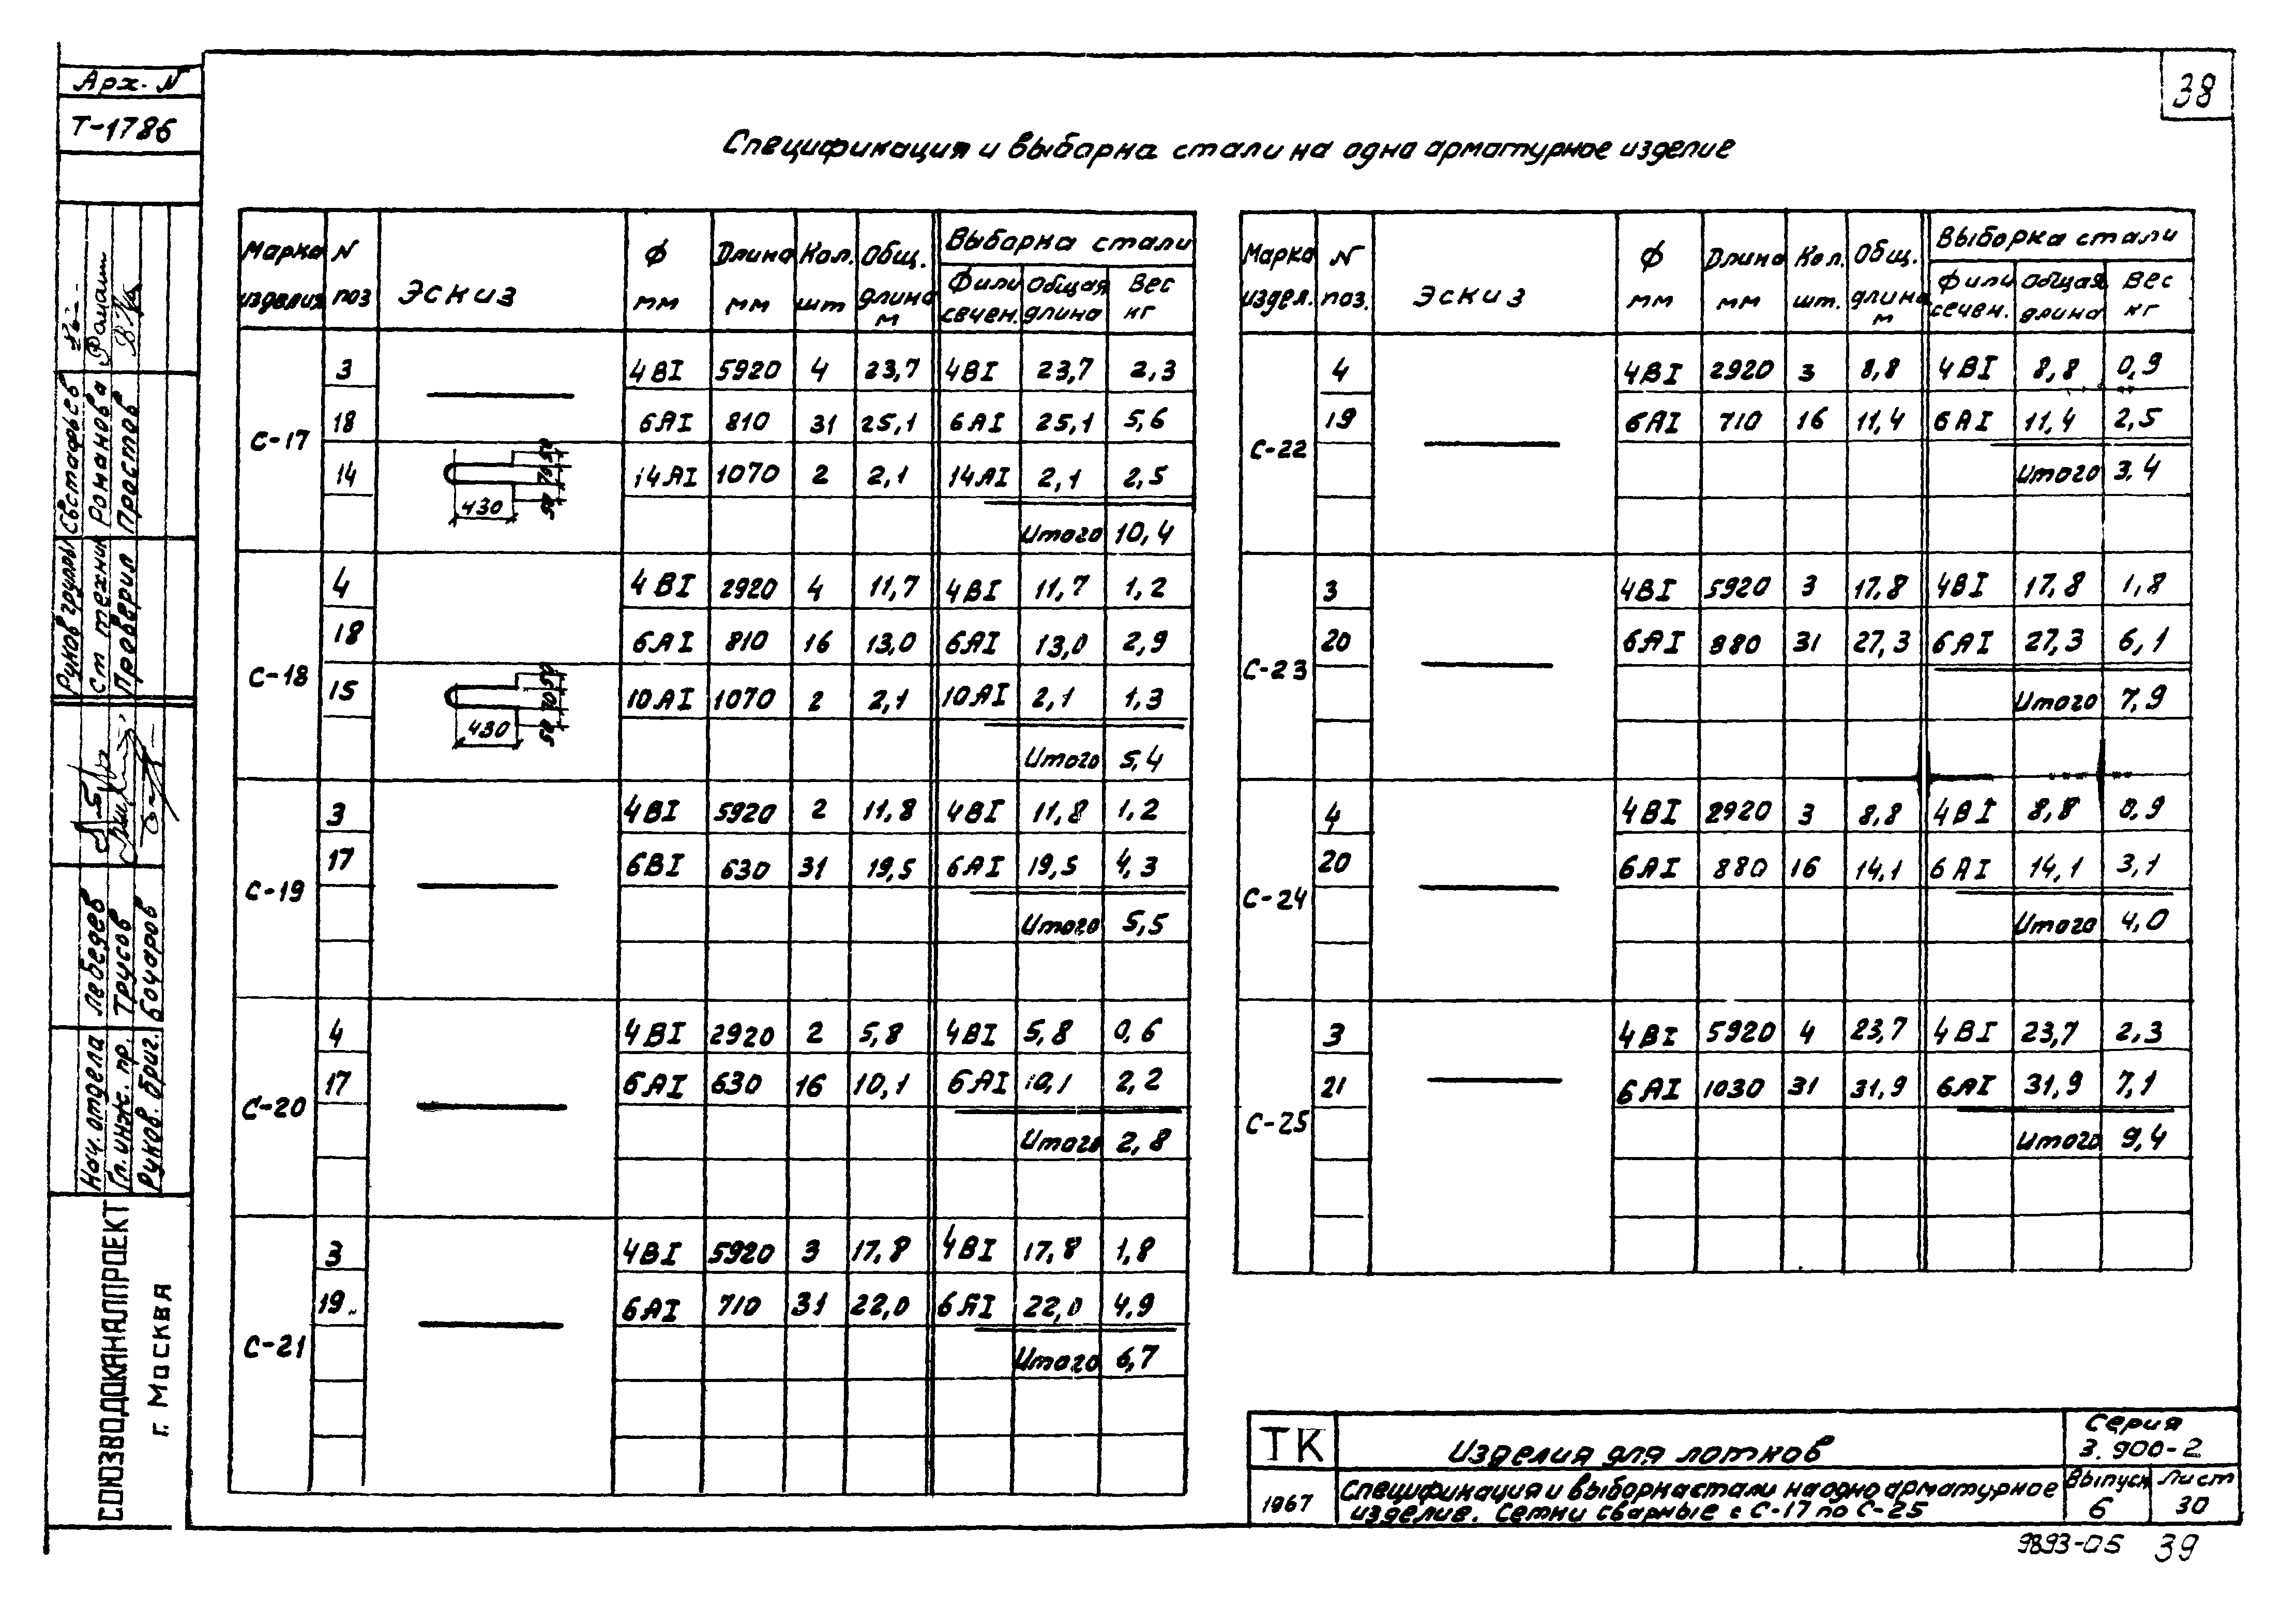 38
Арх. N
Т-1786
Спецификация и выборка стали на одно арматурное изделие
Марка изделия | N поз | Эскиз | Ф мм | Длина мм | Кол. шт | Общ. длина м | Выборка стали
Ф или сечен. | Общая длина | Вес кг
С-17
3 | 4ВI | 5920 | 4 | 23,7 | 4ВI | 23,7 | 2,3
18 | 6АI | 810 | 31 | 25,1 | 6АI | 25,1 | 5,6
14 | 430 | 50 70 50 | 14АI | 1070 | 2 | 2,1 | 14АI | 2,1 | 2,5
Итого 10,4
С-18
4 | 4ВI | 2920 | 4 | 11,7 | 4ВI | 11,7 | 1,2
18 | 6АI | 810 | 16 | 13,0 | 6АI | 13,0 | 2,9
15 | 430 | 50 70 50 | 10АI | 1070 | 2 | 2,1 | 10АI | 2,1 | 1,3
Итого 5,4
С-19
3 | 4ВI | 5920 | 2 | 11,8 | 4ВI | 11,8 | 1,2
17 | 6ВI | 630 | 31 | 19,5 | 6АI | 19,5 | 4,3
Итого 5,5
С-20
4 | 4ВI | 2920 | 2 | 5,8 | 4ВI | 5,8 | 0,6
17 | 6АI | 630 | 16 | 10,1 | 6АI | 10,1 | 2,2
Итого 2,8
С-21
3 | 4ВI | 5920 | 3 | 17,8 | 4ВI | 17,8 | 1,8
19 | 6АI | 710 | 31 | 22,0 | 6АI | 22,0 | 4,9
Итого 6,7
Марка издел. | N поз. | Эскиз | Ф мм | Длина мм | Кол. шт. | Общ. длина м | Выборка стали
Ф или сечен. | Общая длина | Вес кг
С-22
4 | 4ВI | 2920 | 3 | 8,8 | 4ВI | 8,8 | 0,9
19 | 6АI | 710 | 16 | 11,4 | 6АI | 11,4 | 2,5
Итого 3,4
С-23
3 | 4ВI | 5920 | 3 | 17,8 | 4ВI | 17,8 | 1,8
20 | 6АI | 880 | 31 | 27,3 | 6АI | 27,3 | 6,1
Итого 7,9
С-24
4 | 4ВI | 2920 | 3 | 8,8 | 4ВI | 8,8 | 0,9
20 | 6АI | 880 | 16 | 14,1 | 6АI | 14,1 | 3,1
Итого 4,0
С-25
3 | 4ВI | 5920 | 4 | 23,7 | 4ВI | 23,7 | 2,3
21 | 6АI | 1030 | 31 | 31,9 | 6АI | 31,9 | 7,1
Итого 9,4
Руков группы Евстафьев
Ст техник Романова
Проверил Простов
Нач. отдела Лебедев
Гл. инж. пр. Трусов
Руков. бриг. Бочаров
СОЮЗВОДОКАНАЛПРОЕКТ
г. Москва
ТК
1967
Изделия для лотков
Спецификация и выборка стали на одно арматурное
изделие. Сетки сварные с С-17 по С-25
Серия
3.900-2
Выпуск
6
Лист
30
9893-05 39